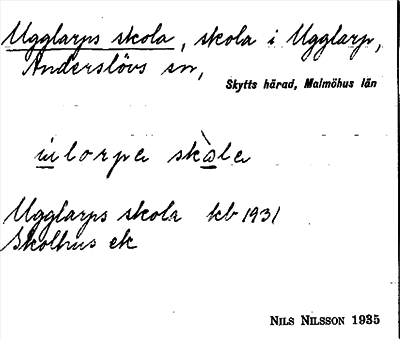 Ugglarps skola, skola i Ugglarp,
Anderslövs sn,
Skytts härad, Malmöhus län
ulorpa skola
Ugglarps skola kb 1931
Skolhus ek
NILS NILSSON 1935